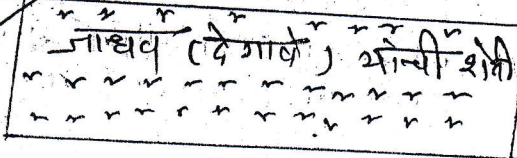 जाधव (देगावे) यांची शेती